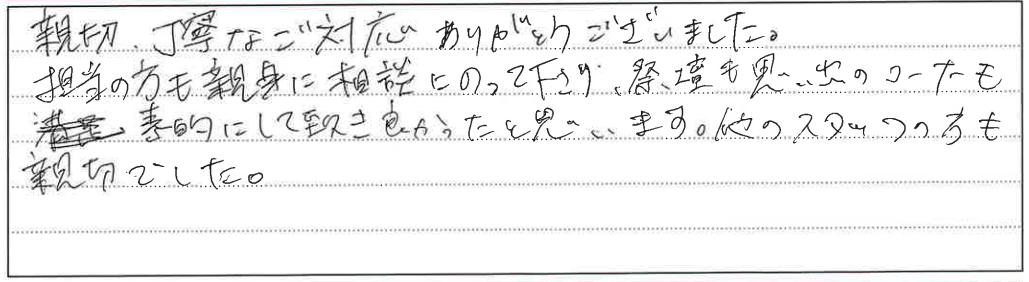 親切、丁寧なご対応ありがとうございました。
担当の方も親身に相談にのって下さり、祭壇も思い出のコーナーも
素的にして頂き良かったと思います。他のスタッフの方も
親切でした。